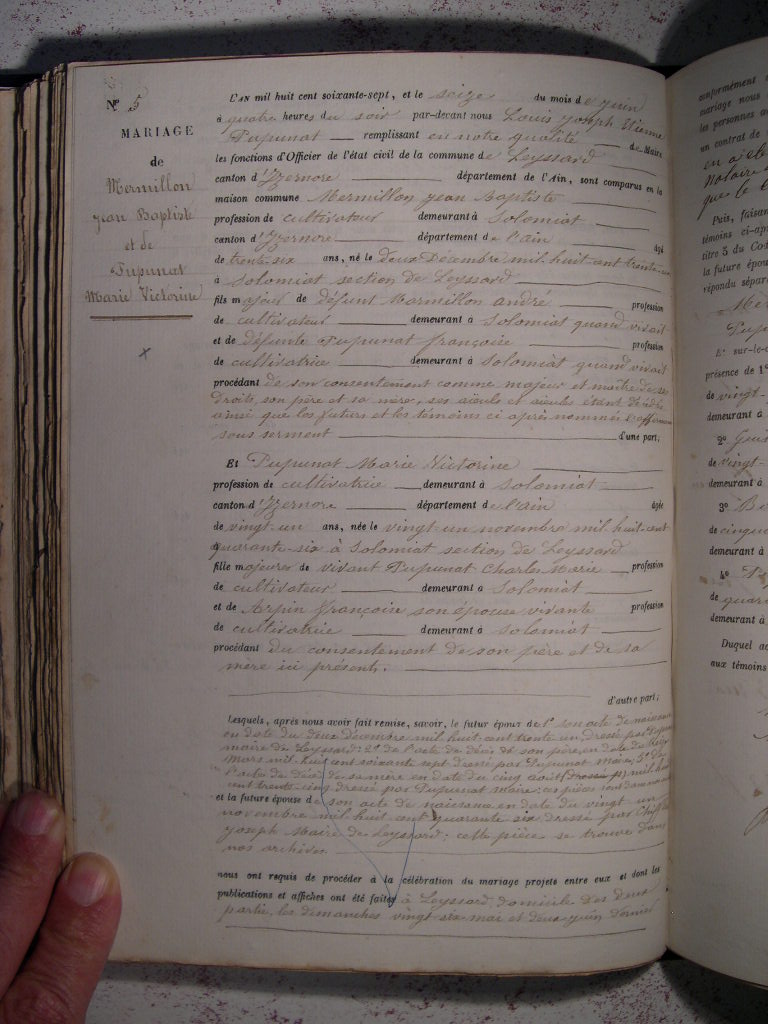 N° 5
MARIAGE
de
Mermillon
jean Baptiste
et de
Pupunat
Marie Victorine
L'AN mil huit cent soixante-sept, et le seize du mois de juin
à quatre heures du soir par-devant nous Louis joseph Etienne
Pupunat remplissant en notre qualité de Maire
les fonctions d'Officier de l'état civil de la commune de Leyssard
canton d'Izernore département de l'Ain, sont comparus en la
maison commune Mermillon jean Baptiste
profession de cultivateur demeurant à Solomiat
canton d'Izernore département de l'ain âgé
de trente-six ans, né le deux Décembre mil-huit-cent trente-un
à Solomiat section de Leyssard
fils majeur de défunt Mermillon andré profession
de cultivateur demeurant à Solomiat quand vivait
et de défunte Pupunat françoise profession
de cultivatrice demeurant à Solomiat quand vivait
procédant de son consentement comme majeur et maître de ses
droits, son père et sa mère, ses aïeuls et aïeules étant décédés
ainsi que les futurs et les témoins ci après nommés l'affirment
sous serment d'une part;
Et Pupunat Marie Victorine
profession de cultivatrice demeurant à Solomiat
canton d'Izernore département de l'ain âgée
de vingt-un ans, née le vingt-un novembre mil-huit-cent
quarante-six à Solomiat section de Leyssard
fille majeure de vivant Pupunat Charles Marie profession
de cultivateur demeurant à Solomiat
et de Arpin françoise son épouse vivante profession
de cultivatrice demeurant à Solomiat
procédant du consentement de son père et de sa
mère ici présents.
d'autre part;
Lesquels, après nous avoir fait remise, savoir, le futur époux de 1° son acte de naissance
en date du deux décembre mil huit cent trente un, dressé par
maire de Leyssard: 2° de l'acte de décès de son père en date du
Mars mil-huit cent soixante sept dressé par Pupunat Maire, 3° de
l'acte de décès de sa mère en date du cinq août (dressé p) mil huit
cent trente-cinq dressé par Pupunat maire: ces pièces sont dans nos archives
et la future épouse de son acte de naissance en date du vingt un
novembre mil huit cent quarante six dressé par
joseph Maire de Leyssard: cette pièce se trouve dans
nos archives.
nous ont requis de procéder à la célébration du mariage projeté entre eux et dont les
publications et affiches ont été faites à Leyssard, domicile des deux
partie, les dimanches vingt-six mai et deux juin dernier
conformément
mariage nous
les personnes
un contrat de
en a été
Notaire
que le
Puis, faisan
témoins ci-apr
titre 5 du Cod
la future épou
répondu sépar
Et sur-le-c
présence de 1°
de vingt-
demeurant à
2°
de vingt-
demeurant à
3°
de cinqu
demeurant à
4°
de quar
demeurant à
Duquel ac
aux témoins